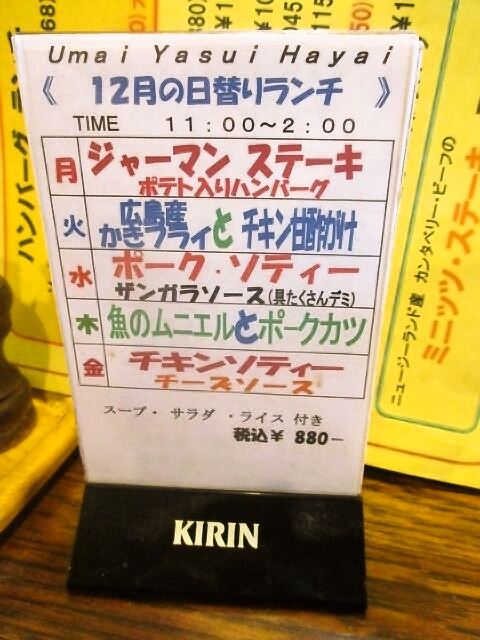 Umai Yasui Hayai
《 12月の日替りランチ 》
TIME 11:00～2:00
月 ジャーマン ステーキ
ポテト入りハンバーグ
火 広島産
かきフライと チキン甘酢がけ
水 ポーク・ソティー
ザンガラソース(具たくさんデミ)
木 魚のムニエルとポークカツ
金 チキンソティー
チーズソース
スープ・ サラダ ・ライス 付き
税込¥ 880−
KIRIN
ハンバーグ
ニュージーランド産 カンタベリー・ビーフの
ミニッツ・ステーキ